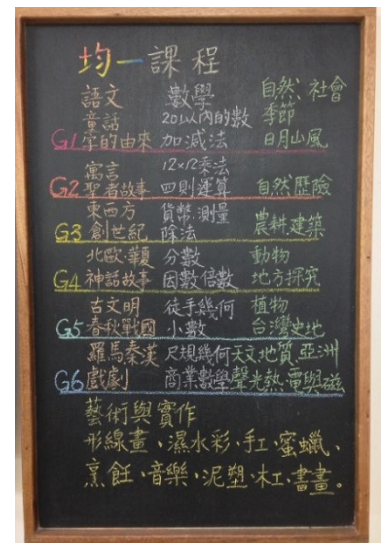 均一課程
語文 數學 自然、社會
童話 20以內的數 季節
G1 字的由來 加減法 日月山風
寓言 12×12乘法
G2 聖者故事 四則運算 自然歷險
東西方 貨幣、測量
G3 創世紀 除法 農耕、建築
北歐、華頁 分數 動物
G4 神話故事 因數倍數 地方探究
古文明 徒手幾何 植物
G5 春秋戰國 小數 台灣史地
羅馬秦漢 尺規幾何 天文、地質、亞洲
G6 戲劇 商業數學 聲光熱、電與磁
藝術與實作
形線畫、濕水彩、手工、蜜蠟、
烹飪、音樂、泥塑、木工、書畫。